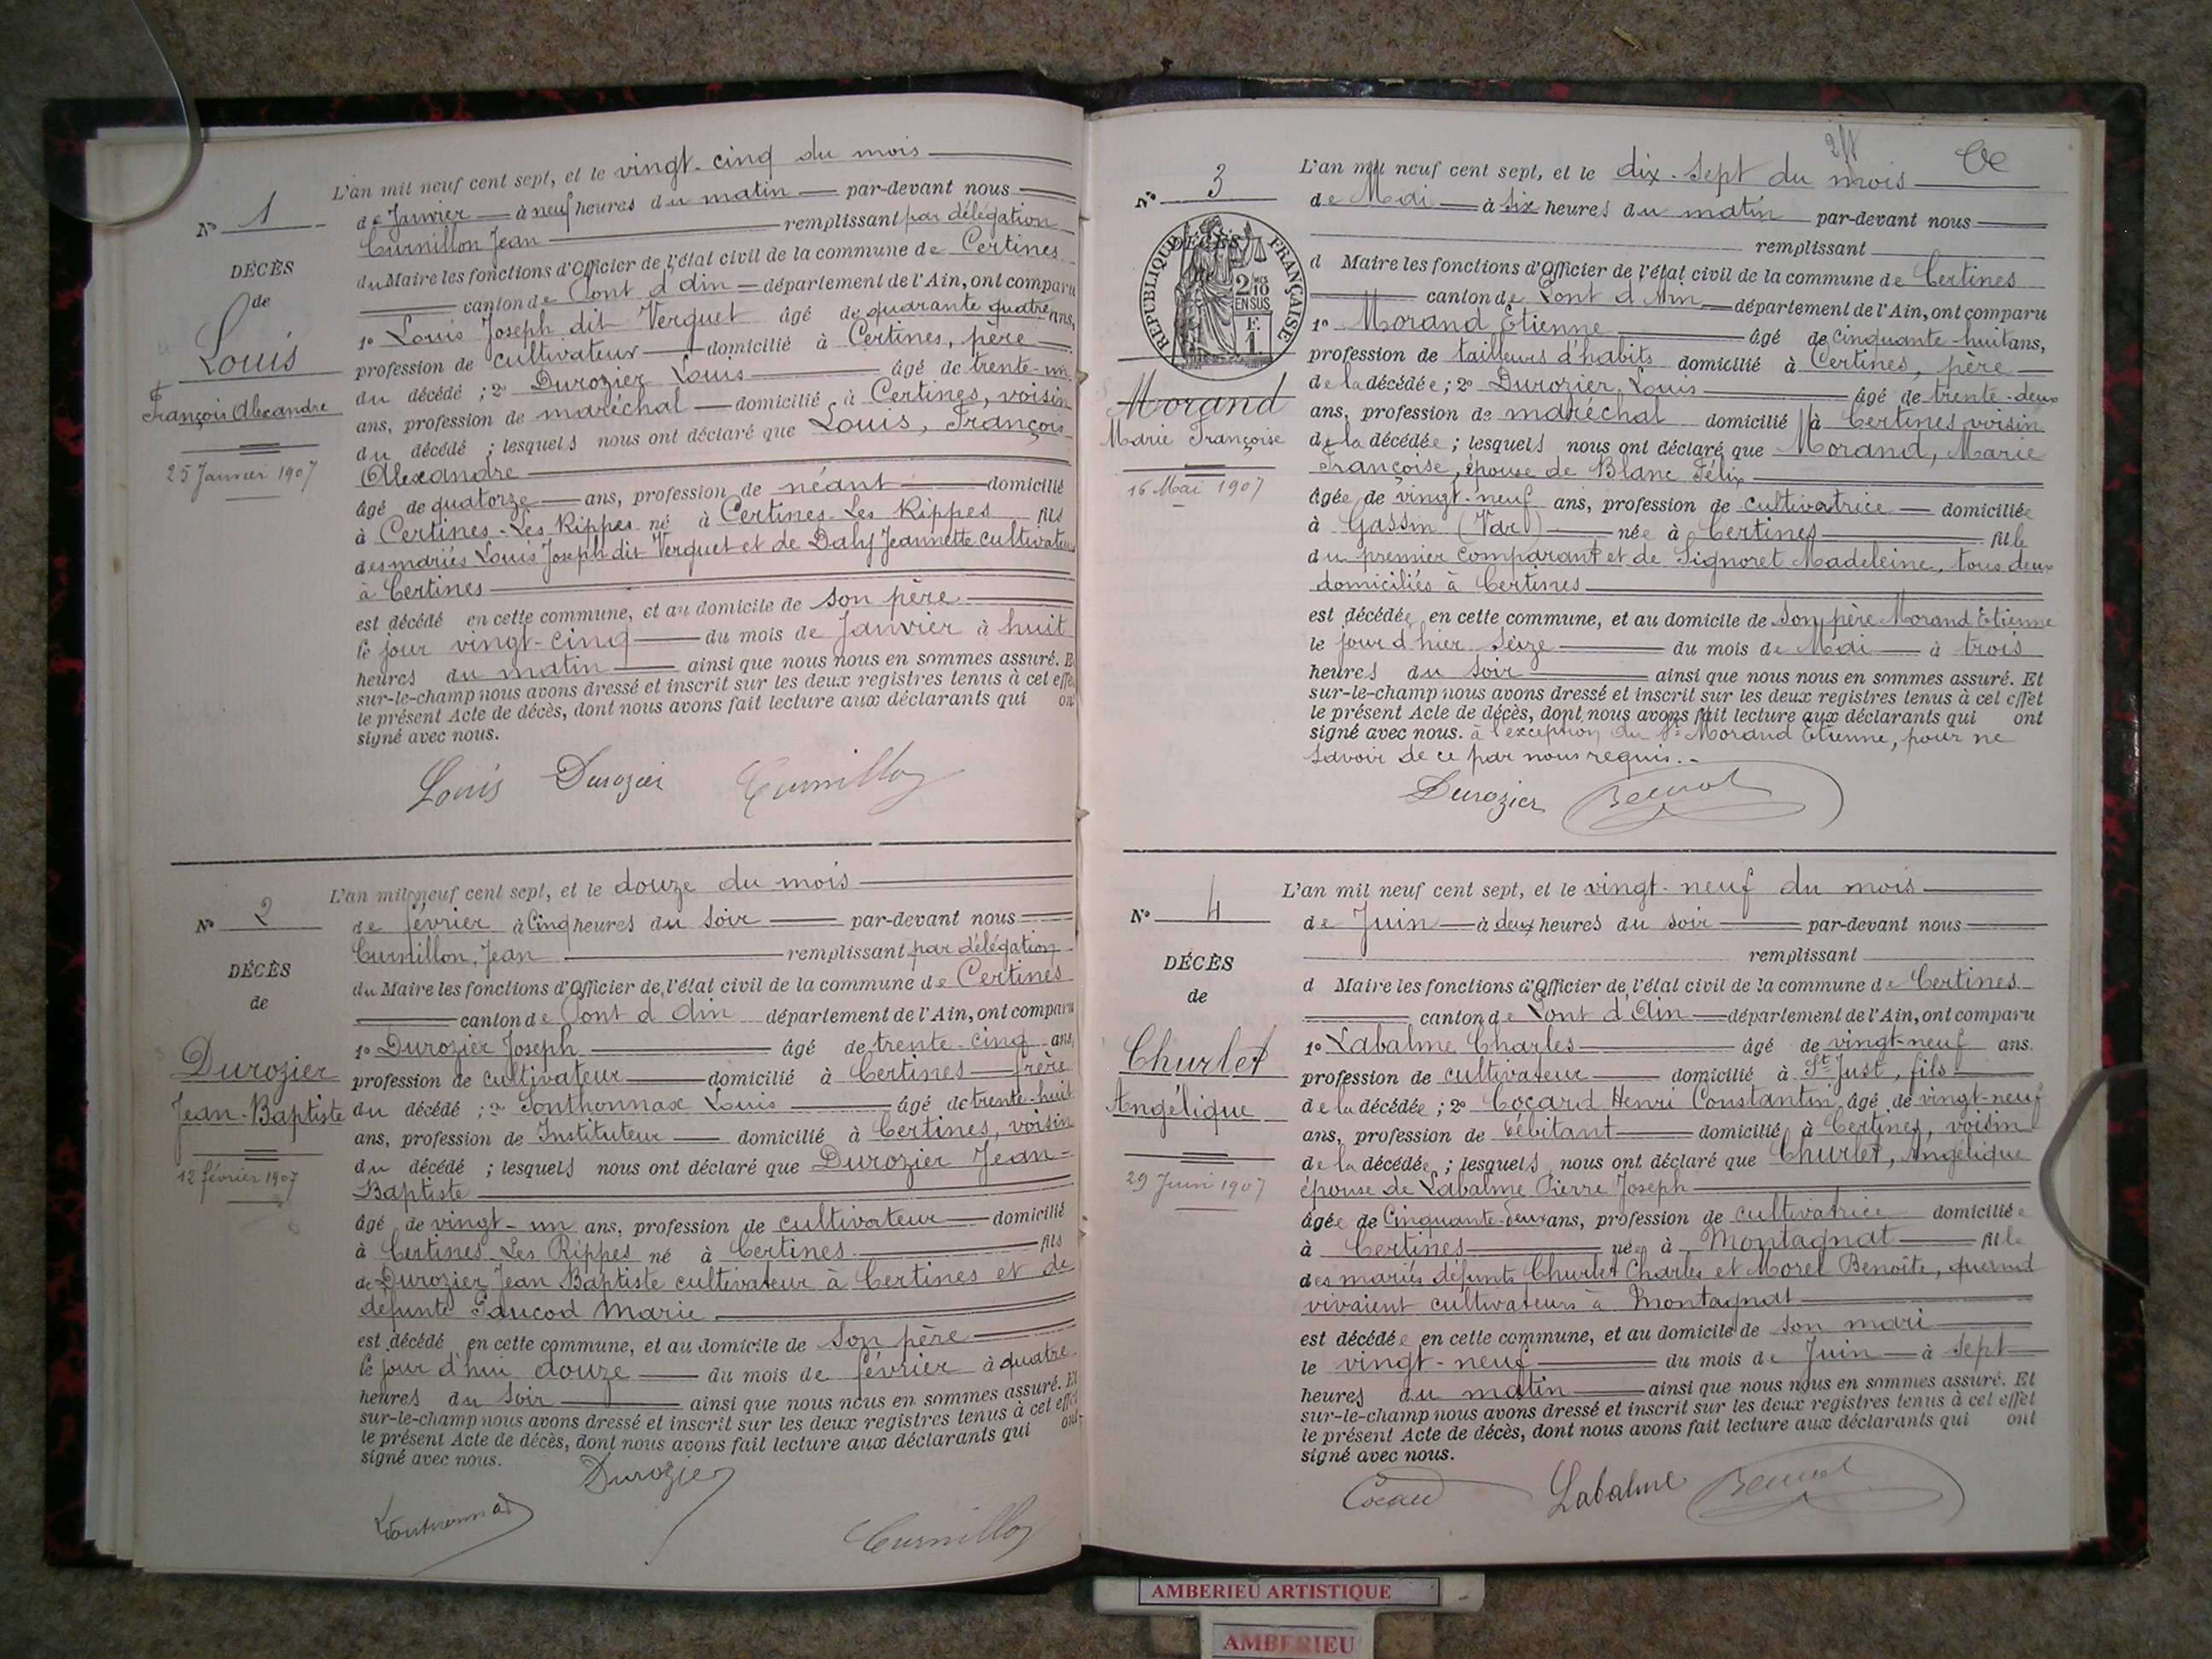 L'an mil neuf cent sept, et le vingt-cinq du mois
de Janvier à neuf heures du matin par-devant nous
Curnillon Jean remplissant par délégation
du Maire les fonctions d'Officier de l'état civil de la commune de Certines
canton de Pont d'Ain département de l'Ain, ont comparu
1º Louis Joseph dit Verguet âgé de quarante quatre ans,
profession de cultivateur domicilié à Certines, père
du décédé ; 2º Durozier Louis âgé de trente-un
ans, profession de maréchal domicilié à Certines, voisin
du décédé ; lesquels nous ont déclaré que Louis, François
Alexandre
âgé de quatorze ans, profession de néant domicilié
à Certines-Les Rippes né à Certines-Les Rippes fils
des mariés Louis Joseph dit Verguet et de Jeannette cultivateurs
à Certines
est décédé en cette commune, et au domicile de son père
le jour vingt-cinq du mois de Janvier à huit
heures du matin ainsi que nous nous en sommes assuré. E
sur-le-champ nous avons dressé et inscrit sur les deux registres tenus à cet effe
le présent Acte de décès, dont nous avons fait lecture aux déclarants qui on
signé avec nous.
Nº 1
DÉCÈS
de
Louis
François Alexandre
25 Janvier 1907
Louis Durozier Curnillon
L'an mil neuf cent sept, et le douze du mois
de février à cinq heures du soir par-devant nous
Curnillon, Jean remplissant par délégation
du Maire les fonctions d'Officier de l'état civil de la commune de Certines
canton de Pont d'Ain département de l'Ain, ont comparu
1º Durozier Joseph âgé de trente-cinq ans,
profession de cultivateur domicilié à Certines frère
du décédé ; 2º Sonthonnax Louis âgé de trente-huit
ans, profession de Instituteur domicilié à Certines, voisin
du décédé ; lesquels nous ont déclaré que Durozier Jean-
Baptiste
âgé de vingt-un ans, profession de cultivateur domicilié
à Certines Les Rippes né à Certines fils
de Durozier Jean Baptiste cultivateur à Certines et de
défunte Marie
est décédé en cette commune, et au domicile de son père
le jour d'hui douze du mois de février à quatre
heures du soir ainsi que nous nous en sommes assuré. Et
sur-le-champ nous avons dressé et inscrit sur les deux registres tenus à cet effet
le présent Acte de décès, dont nous avons fait lecture aux déclarants qui ont
signé avec nous.
Nº 2
DÉCÈS
de
Durozier
Jean-Baptiste
12 février 1907
Durozier
Sonthonnax
Curnillon
L'an mil neuf cent sept, et le dix-sept du mois
de Mai à six heures du matin par-devant nous
remplissant
d Maire les fonctions d'Officier de l'état civil de la commune de Certines
canton de Pont d'Ain département de l'Ain, ont comparu
1º Morand Etienne âgé de cinquante-huit ans,
profession de tailleurs d'habits domicilié à Certines, père
de la décédée ; 2º Durozier Louis âgé de trente-deux
ans, profession de maréchal domicilié à Certines voisin
de la décédée ; lesquels nous ont déclaré que Morand, Marie
Françoise, épouse de Blanc Félix
âgée de vingt-neuf ans, profession de cultivatrice domiciliée
à Gassin (Var) née à Certines fille
du premier comparant et de Signoret Madeleine, tous deux
domiciliés à Certines
est décédée en cette commune, et au domicile de son père Morand Etienne
le jour d'hier seize du mois de Mai à trois
heures du soir ainsi que nous nous en sommes assuré. Et
sur-le-champ nous avons dressé et inscrit sur les deux registres tenus à cet effet
le présent Acte de décès, dont nous avons fait lecture aux déclarants qui ont
signé avec nous. à l'exception du Sr Morand Etienne, pour ne
savoir de ce par nous requis.
Nº 3
DÉCÈS
REPUBLIQUE FRANÇAISE
2/10
EN SUS
Morand
Marie Françoise
16 Mai 1907
Durozier
L'an mil neuf cent sept, et le vingt-neuf du mois
de Juin à deux heures du soir par-devant nous
remplissant
d Maire les fonctions d'Officier de l'état civil de la commune de Certines
canton de Pont d'Ain département de l'Ain, ont comparu
1º Labalme Charles âgé de vingt-neuf ans.
profession de cultivateur domicilié à St Just, fils
de la décédée ; 2º Cocard Henri Constantin âgé de vingt-neuf
ans, profession de débitant domicilié à Certines, voisin
de la décédée ; lesquels nous ont déclaré que Churlet, Angélique
épouse de Labalme Pierre Joseph
âgée de cinquante-deux ans, profession de cultivatrice domiciliée
à Certines née à Montagnat fille
des mariés défunts Churlet Charles et Morel Benoîte, quernd
vivaient cultivateurs à Montagnat
est décédée en cette commune, et au domicile de son mari
le vingt-neuf du mois de Juin à sept
heures du matin ainsi que nous nous en sommes assuré. Et
sur-le-champ nous avons dressé et inscrit sur les deux registres tenus à cet effet
le présent Acte de décès, dont nous avons fait lecture aux déclarants qui ont
signé avec nous.
Nº 4
DÉCÈS
de
Churlet
Angélique
29 Juin 1907
Cocard Labalme
AMBERIEU ARTISTIQUE
AMBERIEU